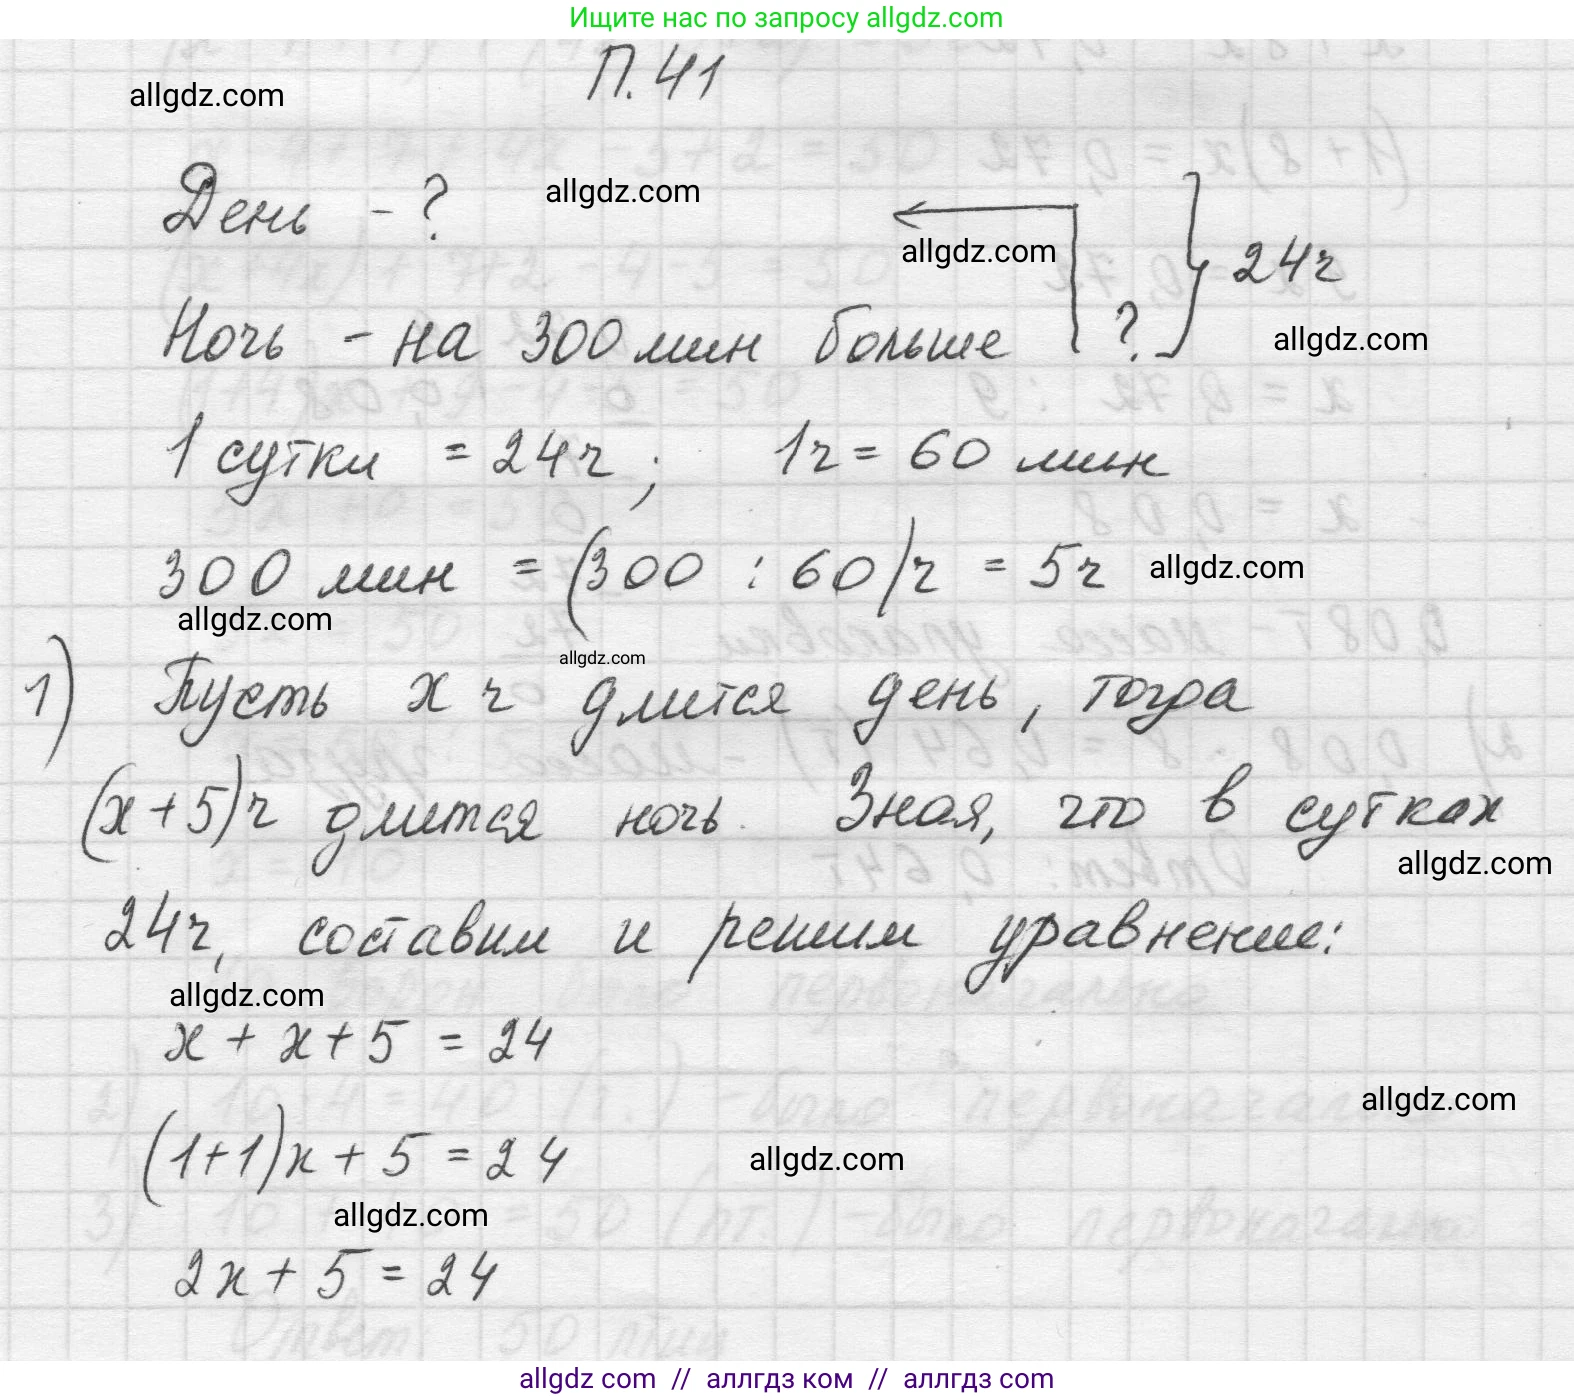 Ищите нас по запросу allgdz.com
П.41
allgdz.com
День - ?
allgdz.com
allgdz.com
24ч
Ночь - на 300 мин больше ?
allgdz.com
1 сутки = 24ч; 1ч = 60 мин
300 мин = (300 : 60)ч = 5ч
allgdz.com
allgdz.com
allgdz.com
1) Пусть х ч длится день, тогда
(х+5)ч длится ночь. Зная, что в сутках
allgdz.com
24ч, составим и решим уравнение:
allgdz.com
х + х + 5 = 24
allgdz.com
(1+1)х + 5 = 24
allgdz.com
allgdz.com
2х + 5 = 24
allgdz.com // аллгдз ком // allgdz.com